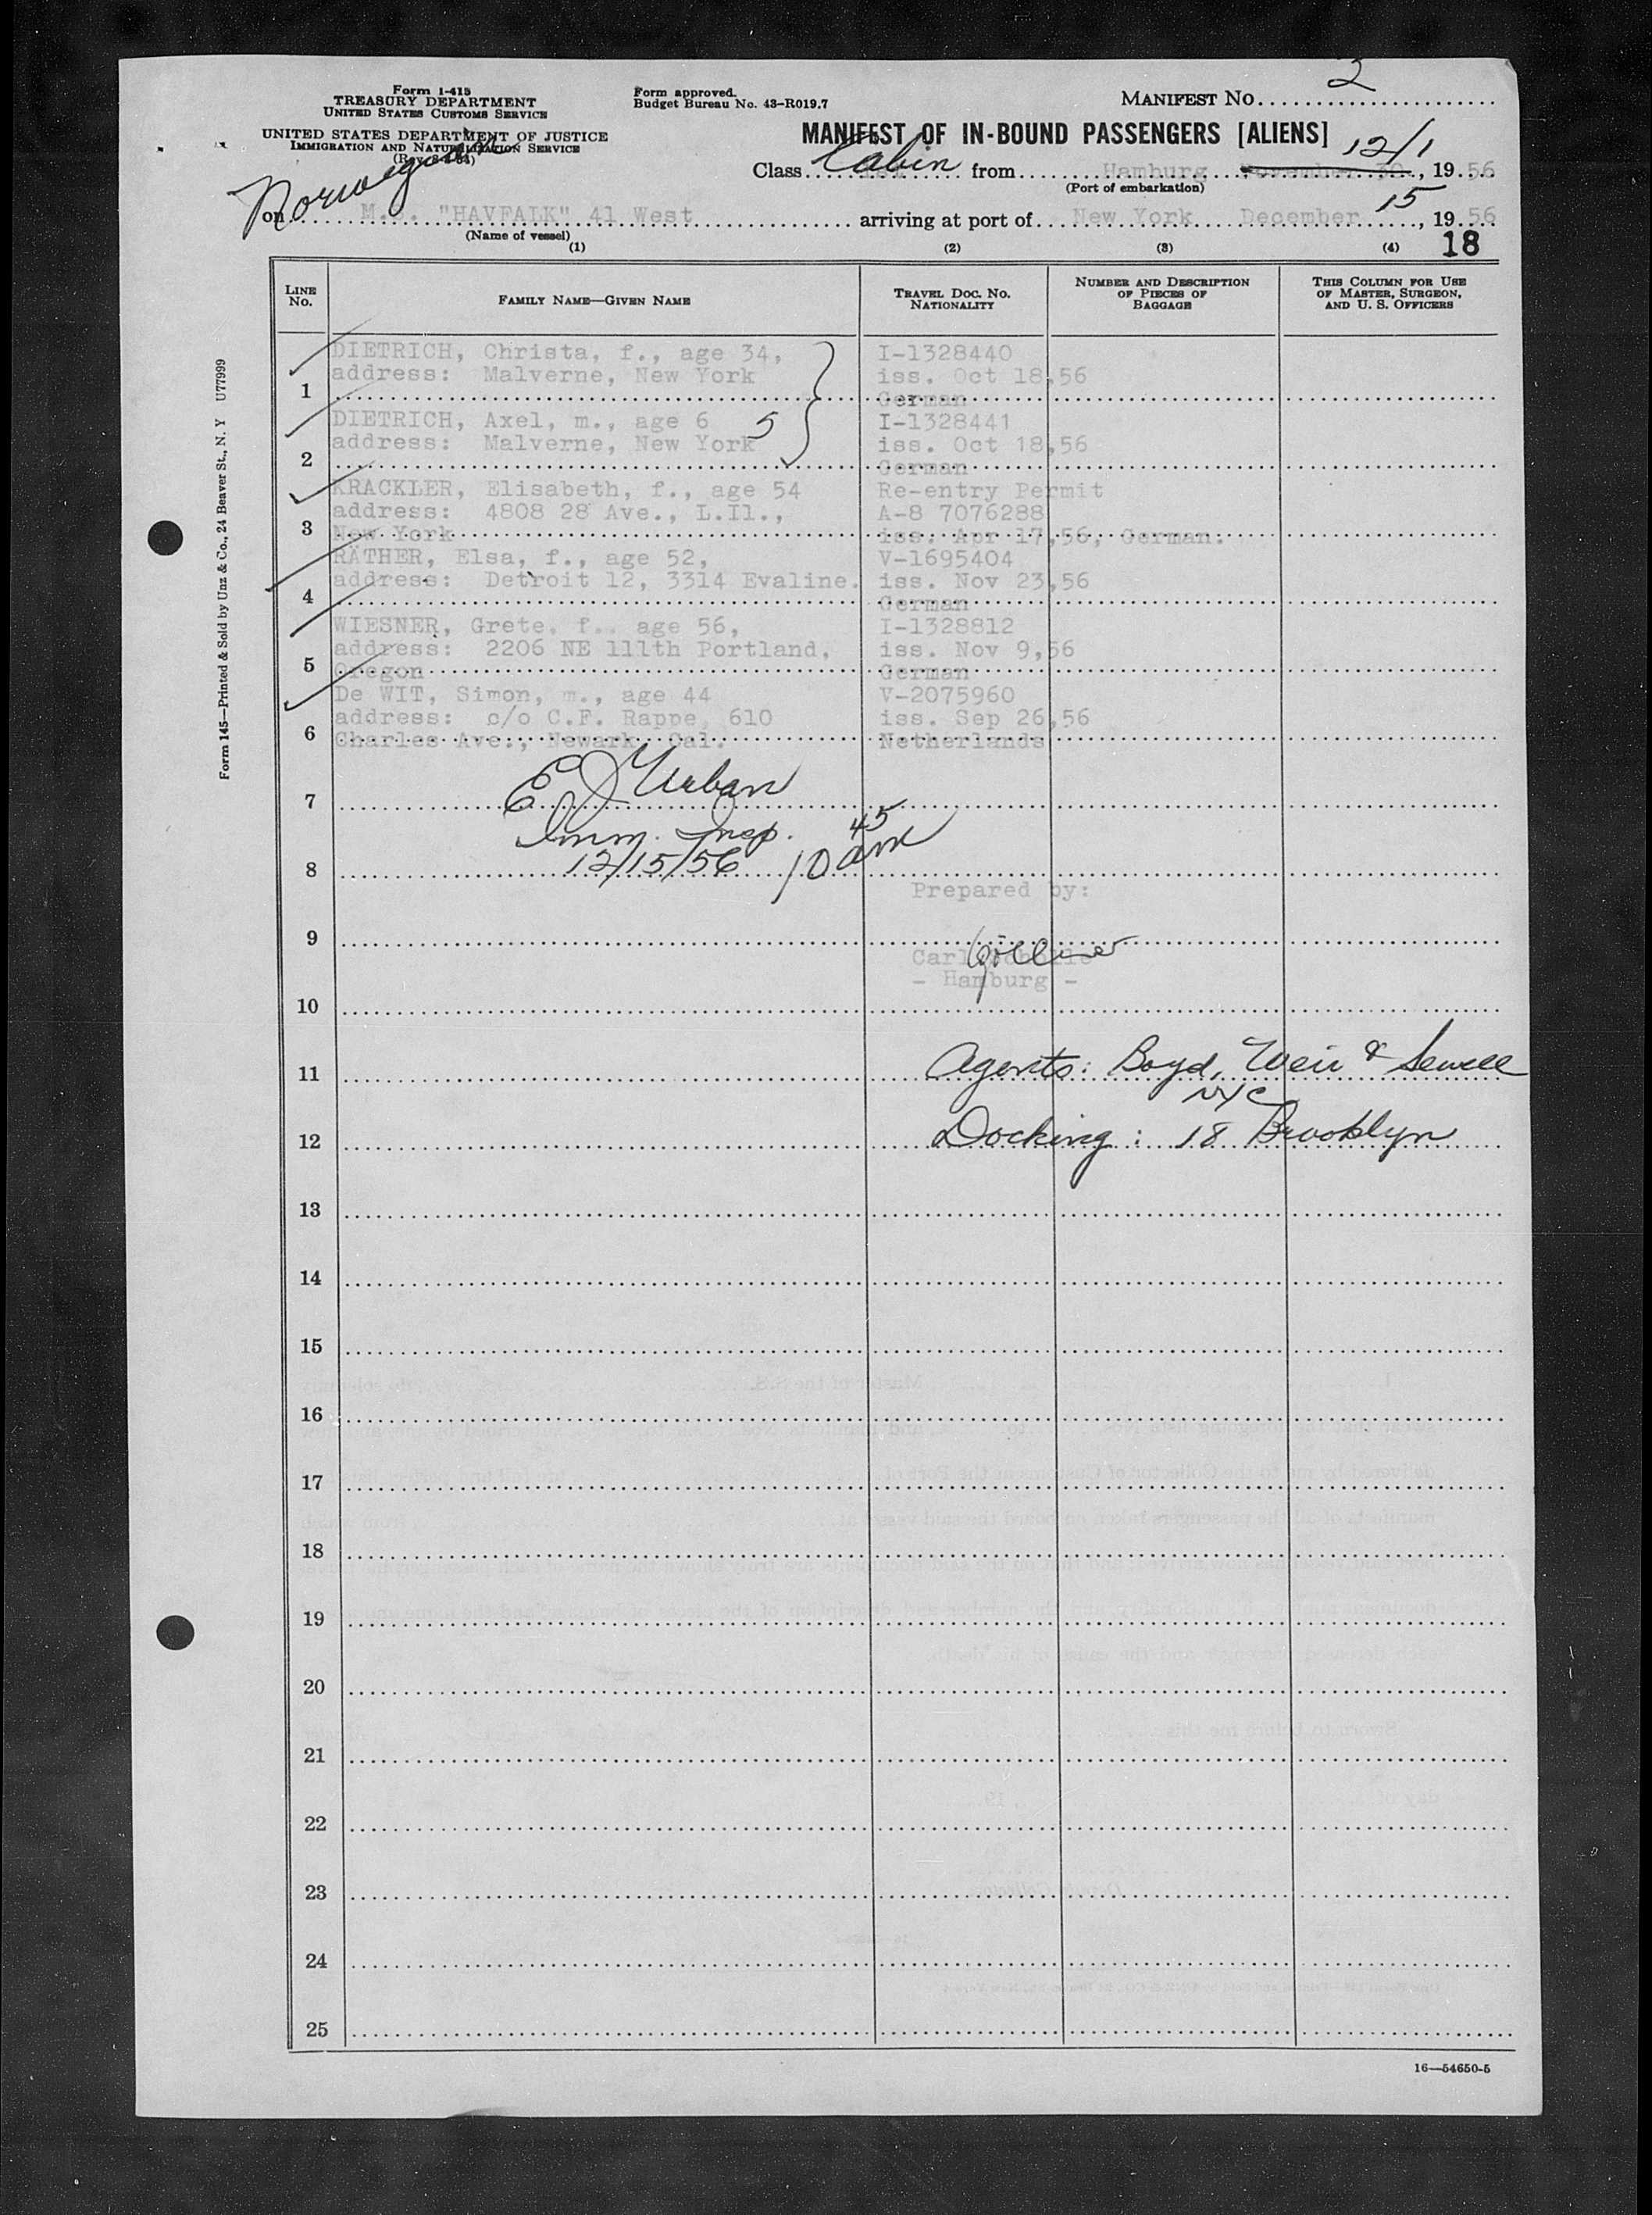 2
Form I-415
TREASURY DEPARTMENT
UNITED STATES CUSTOMS SERVICE
Form approved.
Budget Bureau No. 43-R019.7
MANIFEST NO.
UNITED STATES DEPARTMENT OF JUSTICE
IMMIGRATION AND NATURALIZATION SERVICE
MANIFEST OF IN-BOUND PASSENGERS [ALIENS]
Norwegian
Class Cabin from Hamburg November 30 12/1, 19 56
(Port of embarkation)
on "HAVFALK" 41 West arriving at port of New York December 15, 19 56
(Name of vessel)
(1) (2) (3) (4) 18
LINE No.
FAMILY NAME—GIVEN NAME
TRAVEL DOC. NO. NATIONALITY
NUMBER AND DESCRIPTION OF PIECES OF BAGGAGE
THIS COLUMN FOR USE OF MASTER, SURGEON, AND U. S. OFFICERS
DIETRICH, Christa, f., age 34, I-1328440
address: Malverne, New York iss. Oct 18,56
1 German
DIETRICH, Axel, m., age 6 5 I-1328441
address: Malverne, New York iss. Oct 18,56
2 German
KRACKLER, Elisabeth, f., age 54 Re-entry Permit
address: 4808 28 Ave., L.Il., A-8 7076288
3 New York iss. Apr 17,56, German.
RÄTHER, Elsa, f., age 52, V-1695404
address: Detroit 12, 3314 Evaline. iss. Nov 23,56
4 German
WIESNER, Grete, f., age 56, I-1328812
address: 2206 NE 111th Portland, iss. Nov 9,56
5 Oregon German
De WIT, Simon, m., age 44 V-2075960
address: c/o C.F. Rappe, 610 iss. Sep 26,56
6 Charles Ave., Newark, Cal. Netherlands
E J Urban
7
Imm. Insp.
12/15/56 10 45 am
8
Prepared by:
9
Carl
- Hamburg -
10
Agents: Boyd, Weir & Sewell
11
NYC
Docking: 18 Brooklyn
12
13
14
15
16
17
18
19
20
21
22
23
24
25
16—54650-5
Form 145—Printed & Sold by Unz & Co., 24 Beaver St., N. Y U77999